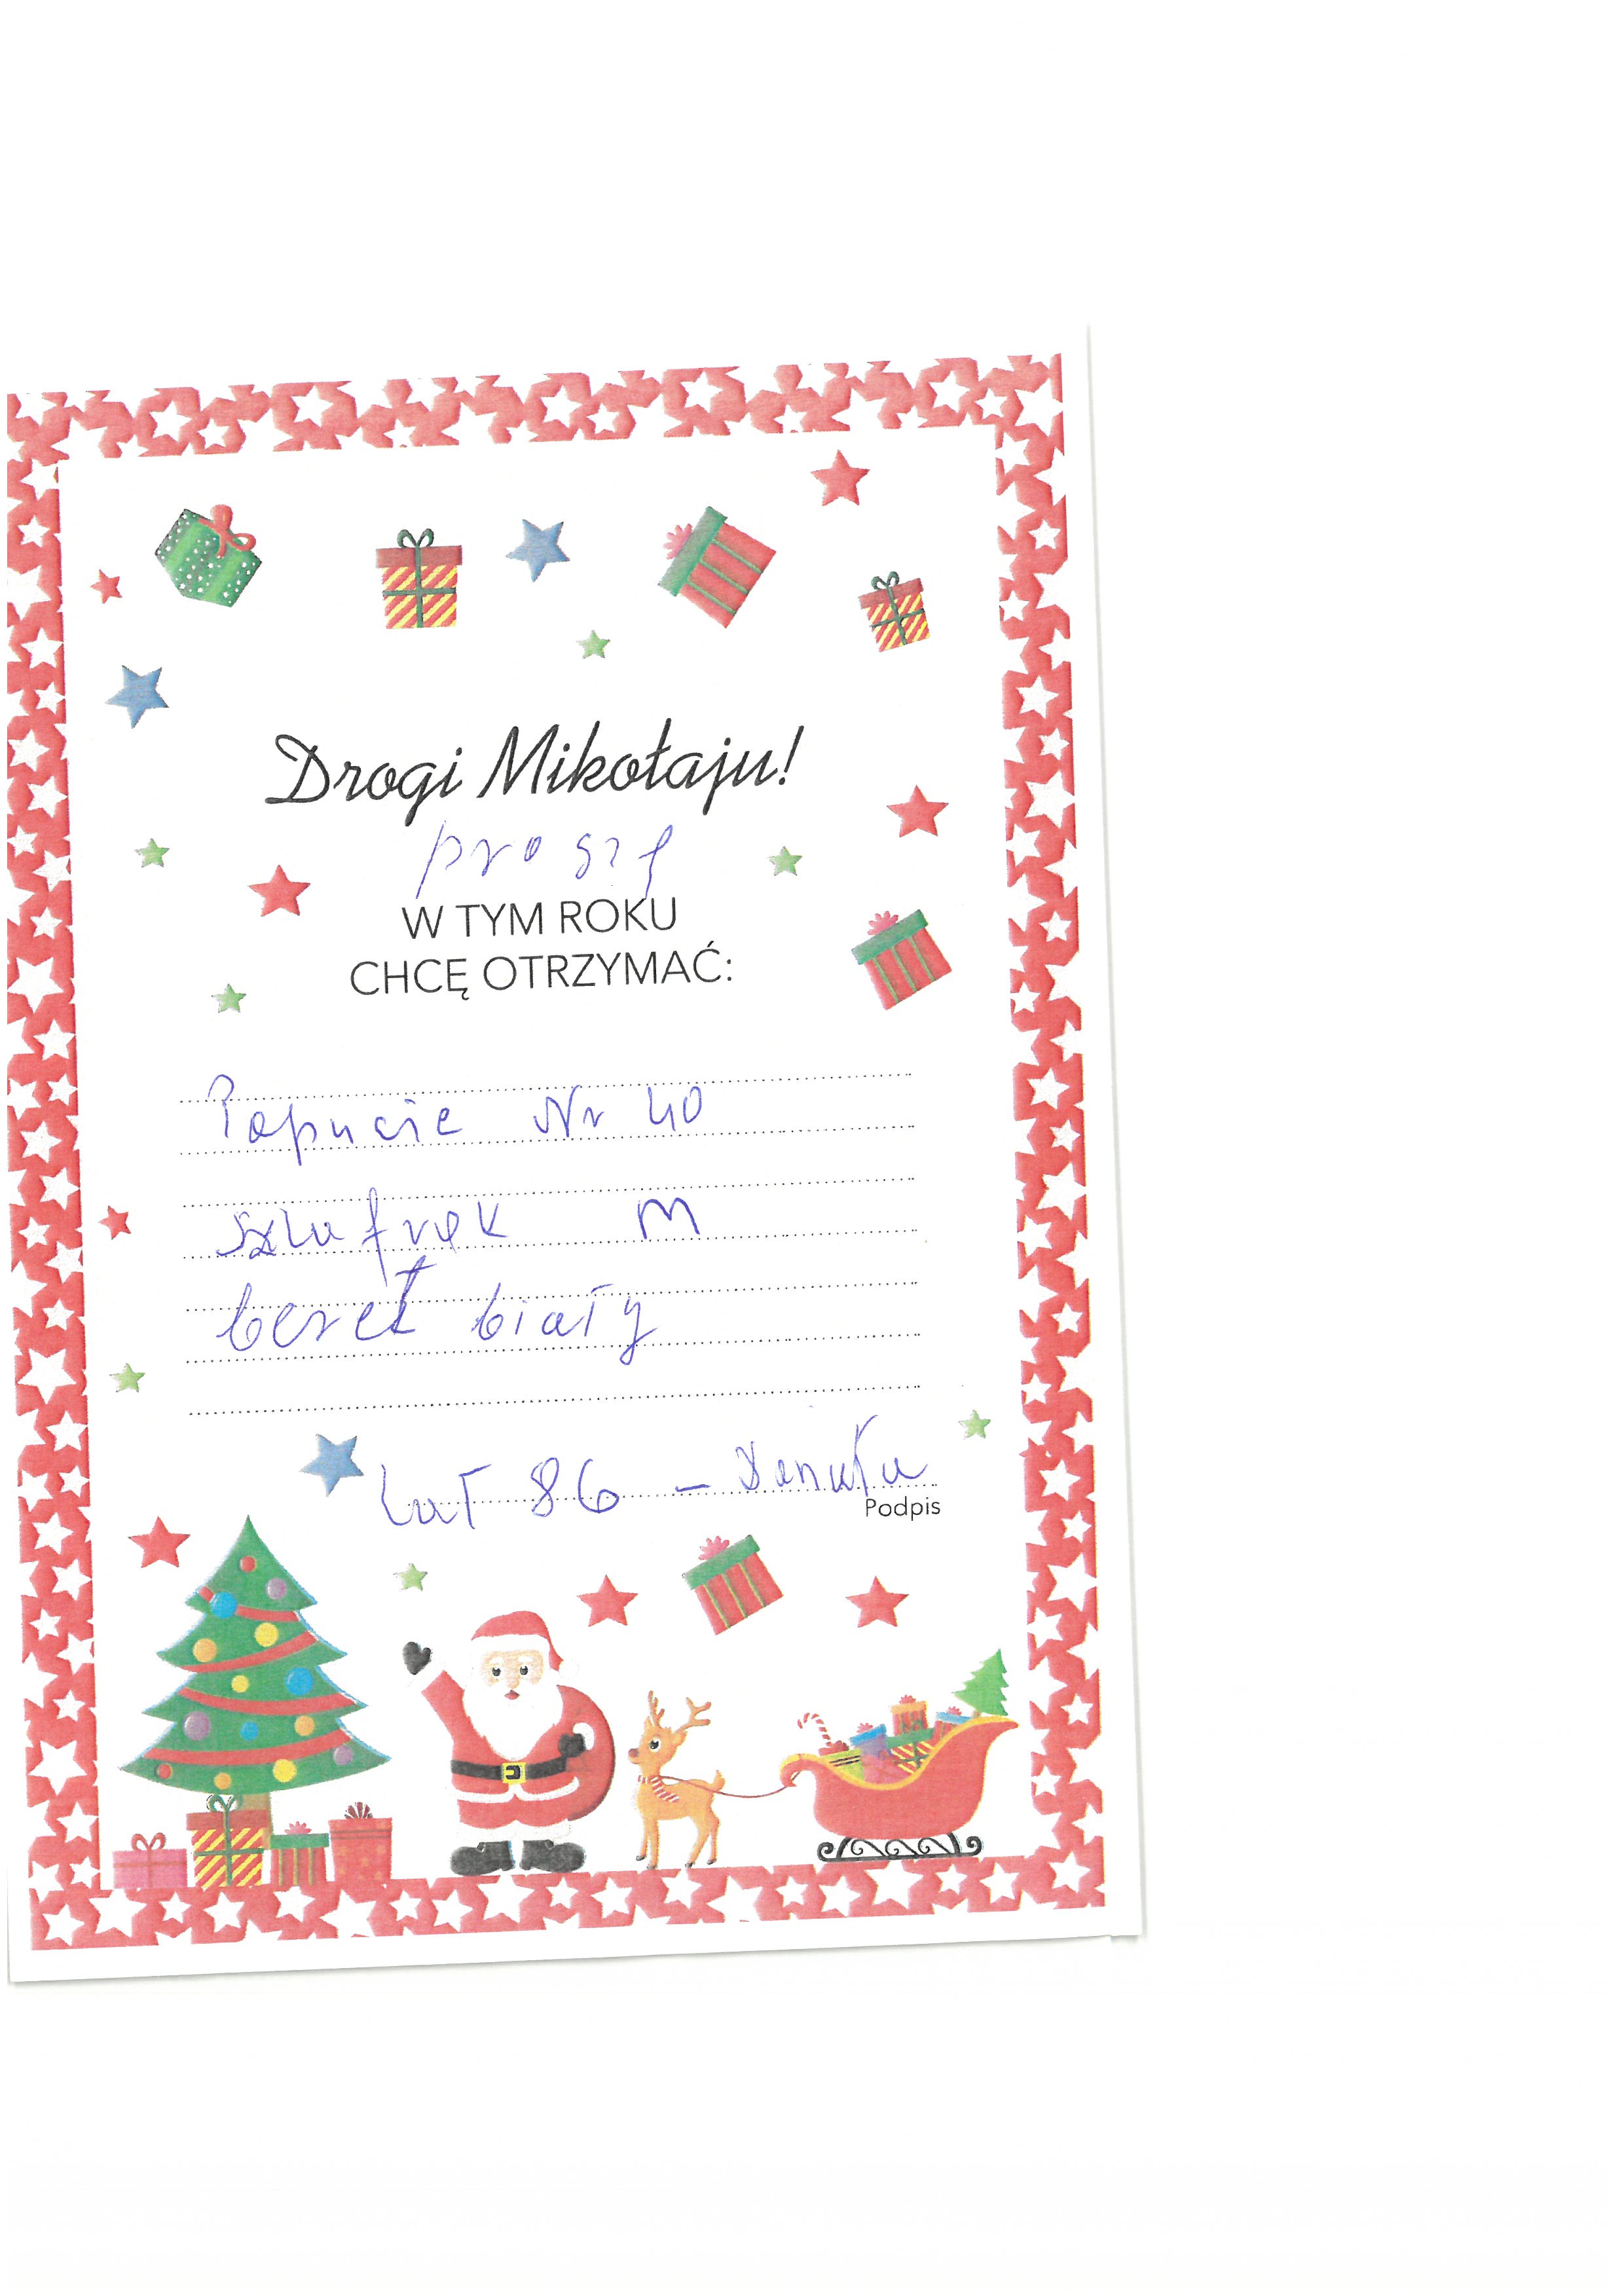 Drogi Mikołaju!
proszę
W TYM ROKU
CHCĘ OTRZYMAĆ:
Papucie Nr 40
szlafrok M
beret biały
Lat 86 – Danuta
Podpis